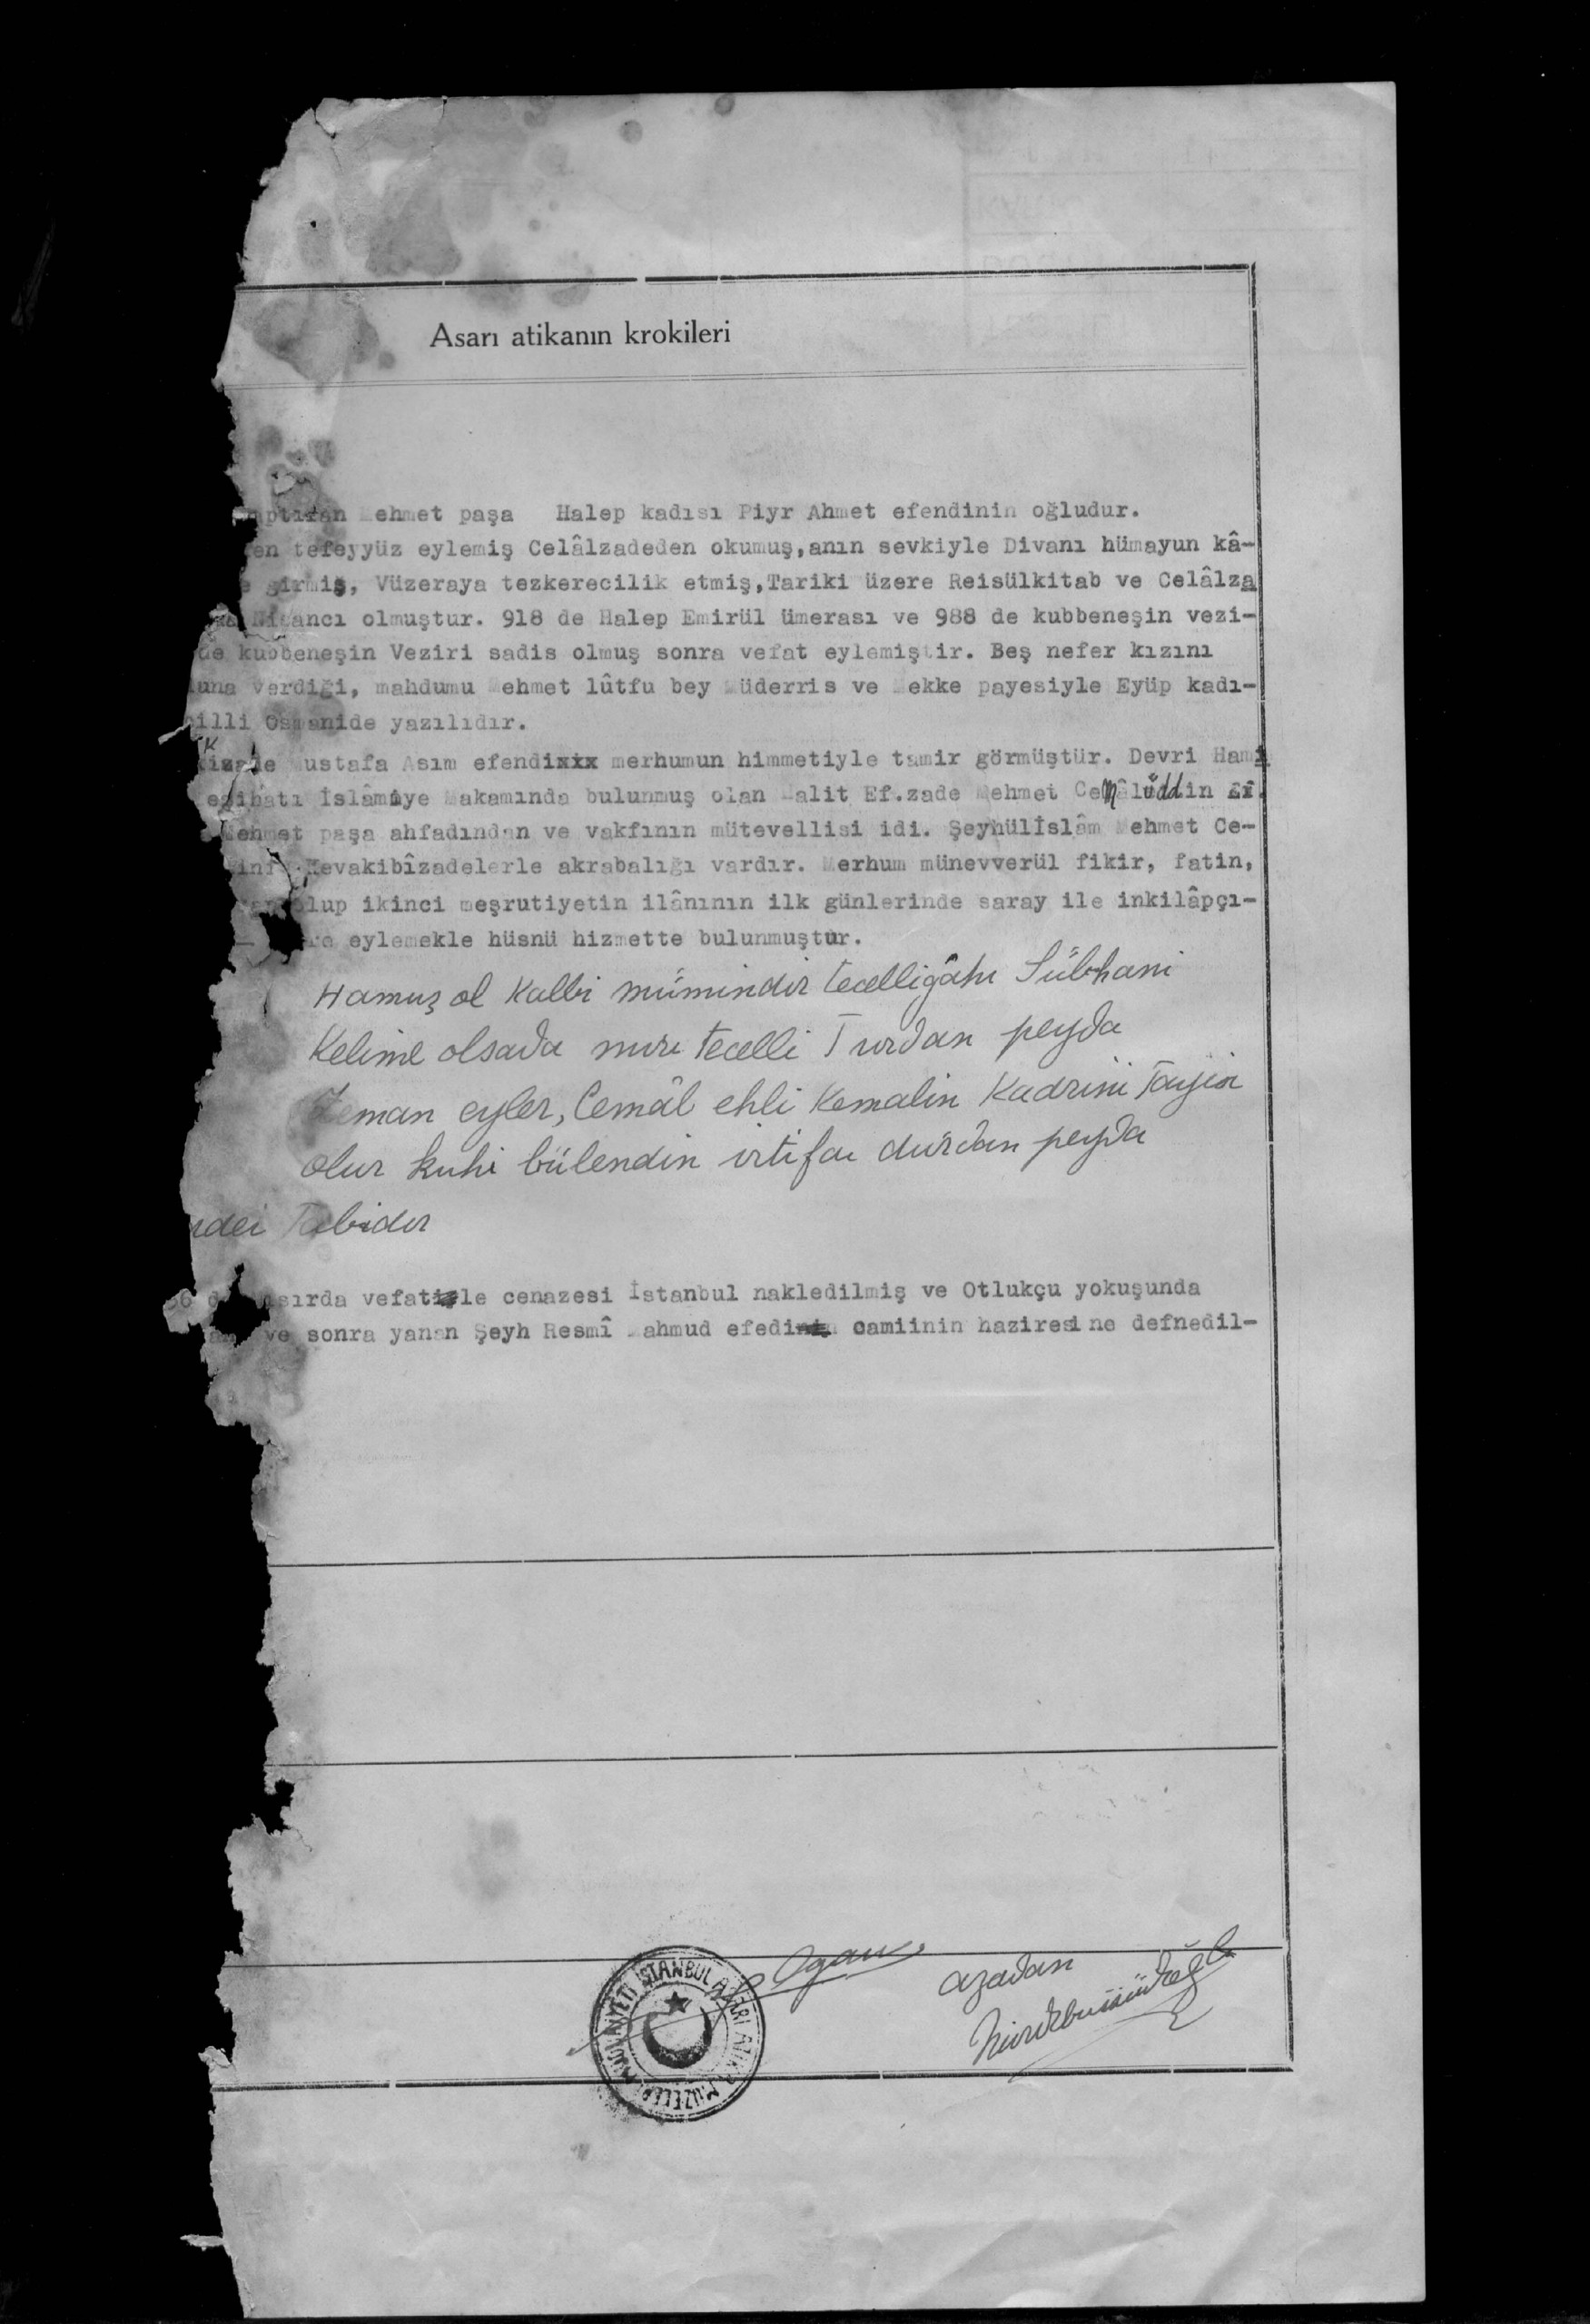 Asarı atikanın krokileri
aptıran Mehmet paşa Halep kadısı Piyr Ahmet efendinin oğludur.
en tefeyyüz eylemiş Celâlzadeden okumuş,anın sevkiyle Divanı hümayun kâ-
e girmiş, Vüzeraya tezkerecilik etmiş,Tariki üzere Reisülkitab ve Celâlza
Nişancı olmuştur. 918 de Halep Emirül ümerası ve 988 de kubbeneşin vezi-
de kubbeneşin Veziri sadis olmuş sonra vefat eylemiştir. Beş nefer kızını
una verdiği, mahdumu Mehmet lûtfu bey Müderris ve Mekke payesiyle Eyüp kadı-
cilli Osmanide yazılıdır.
Mustafa Asım efendixxx merhumun himmetiyle tamir görmüştür. Devri Hami
İslâmiye Makamında bulunmuş olan Halit Ef.zade Mehmet Cemâlüddin Ef.
Mehmet paşa ahfadından ve vakfının mütevellisi idi. Şeyhülİslâm Mehmet Ce-
Kevakibîzadelerle akrabalığı vardır. Merhum münevverül fikir, fatin,
olup ikinci meşrutiyetin ilânının ilk günlerinde saray ile inkilâpçı-
eylemekle hüsnü hizmette bulunmuştur.
Hamuş ol Kalbi mümindir tecelligâhı Sübhani
Kelime olsada nuru tecelli Turdan peyda
Zeman eyler, Cemâl ehli Kemalin Kadrini Tayin
olur kuhi bülendin irtifaı dûrdan peyda
Tabidir
vefatile cenazesi İstanbul nakledilmiş ve Otlukçu yokuşunda
ve sonra yanan Şeyh Resmî Mahmud efedinin camiinin haziresine defnedil-
Ogan
azadan
İSTANBUL ASARI ATİKA MÜZELERİ